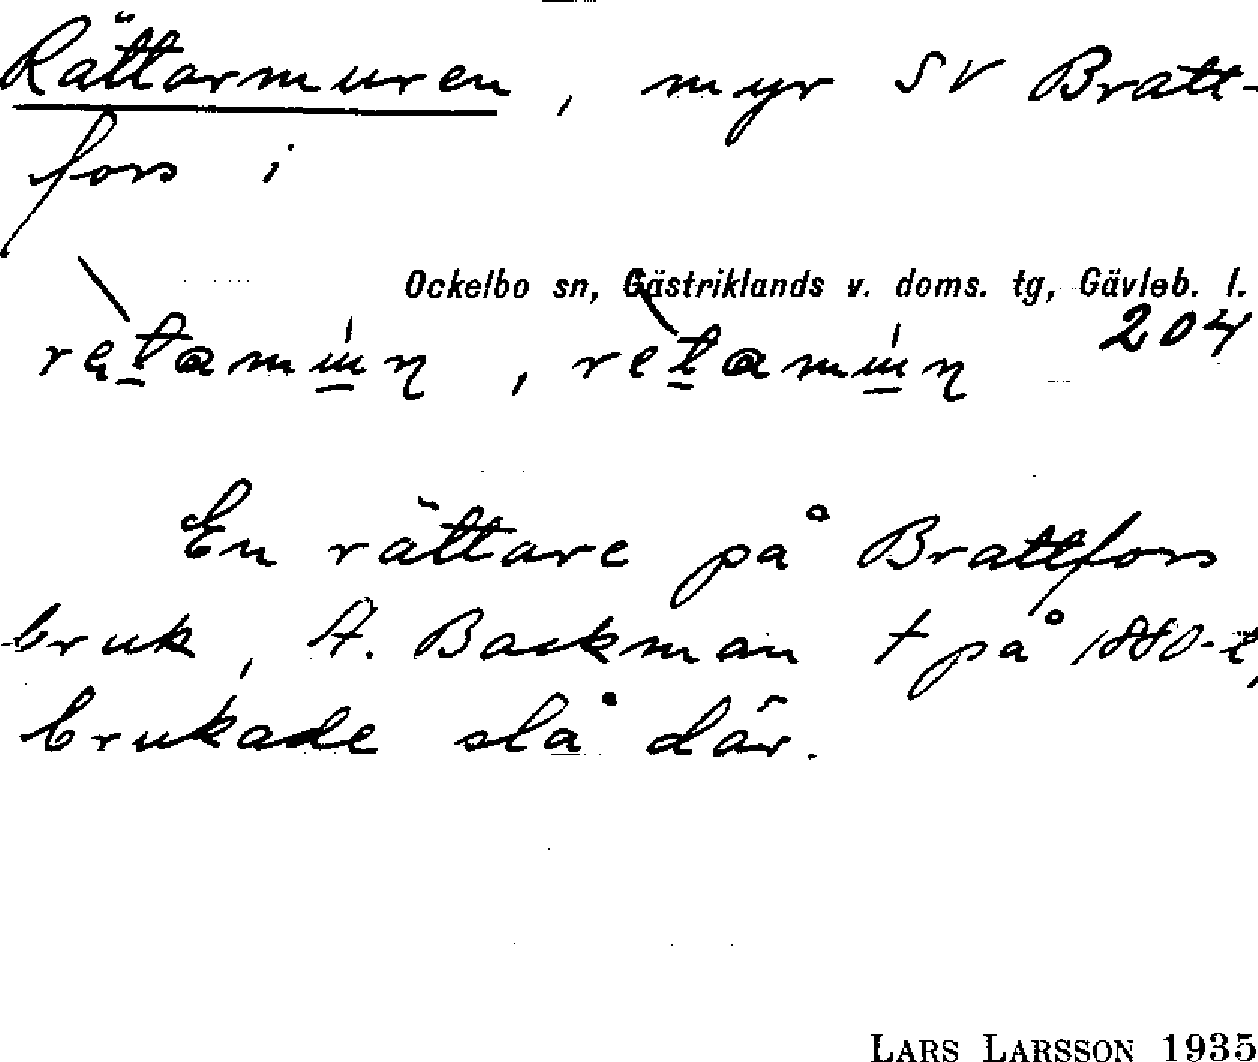 Rättarmuren, myr SV Bratt-
fors i
Ockelbo sn, Gästriklands v. doms. tg, Gävleb. l.
204
En rättare på Brattfors
bruk, A. Backman † på 1880-t,
brukade slå där.
LARS LARSSON 1935